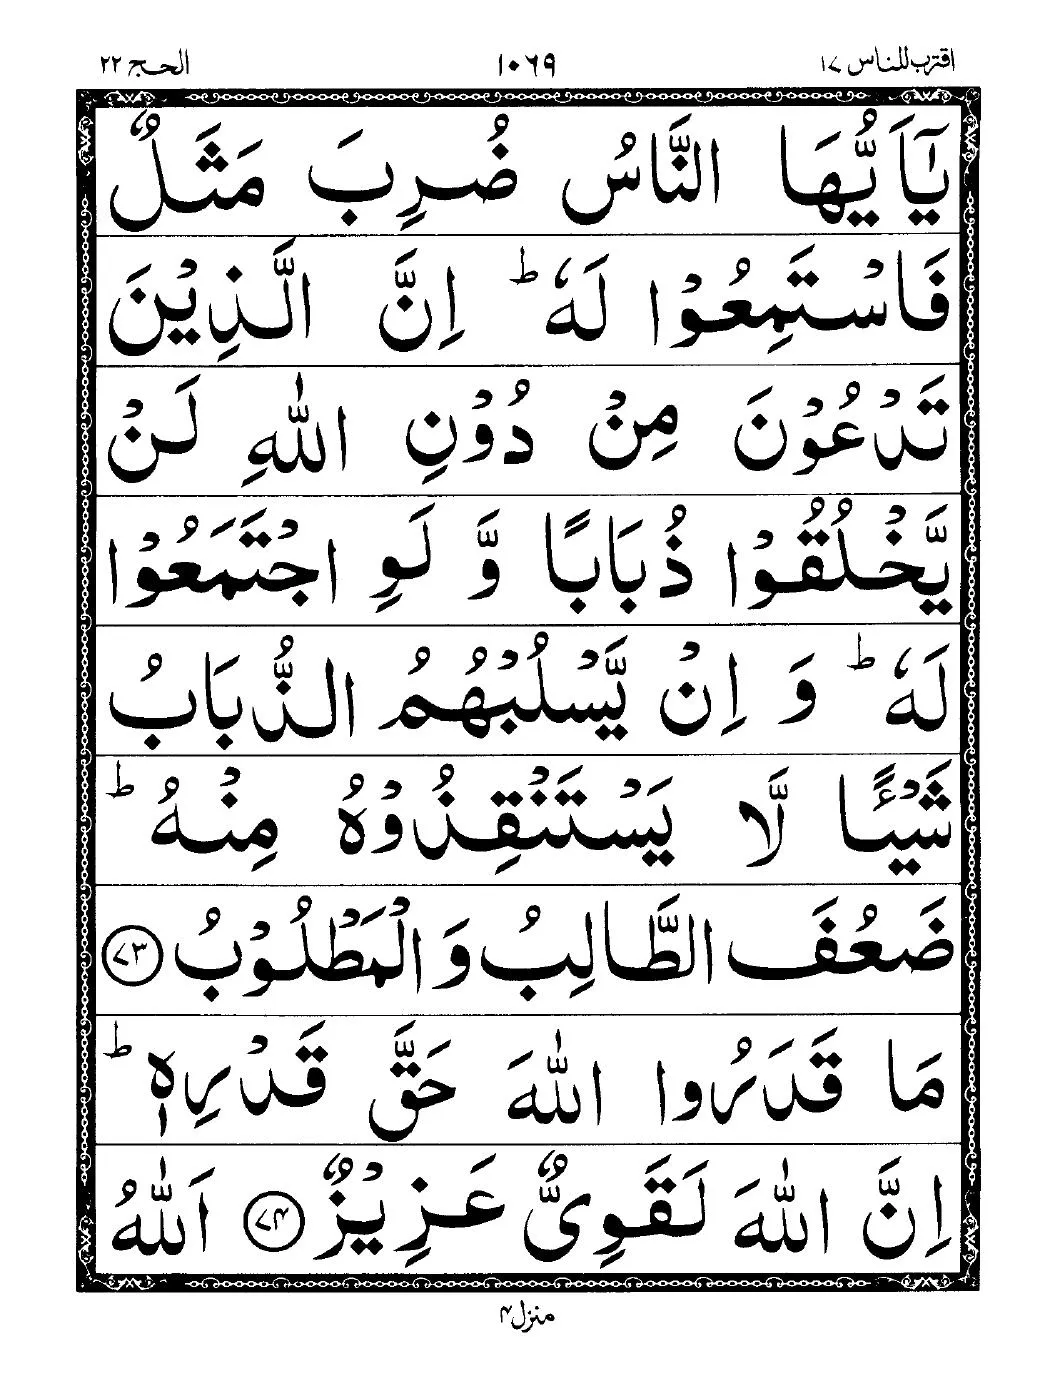 اقترب للناس ١٧ ١٠٦٩ الحج ٢٢
يٰٓاَيُّهَا النَّاسُ ضُرِبَ مَثَلٌ
فَاسْتَمِعُوْا لَهٗ ؕ اِنَّ الَّذِيْنَ
تَدْعُوْنَ مِنْ دُوْنِ اللّٰهِ لَنْ
يَّخْلُقُوْا ذُبَابًا وَّ لَوِ اجْتَمَعُوْا
لَهٗ ؕ وَ اِنْ يَّسْلُبْهُمُ الذُّبَابُ
شَيْـًٔا لَّا يَسْتَنْقِذُوْهُ مِنْهُ ؕ
ضَعُفَ الطَّالِبُ وَ الْمَطْلُوْبُ ﴿٧٣﴾
مَا قَدَرُوا اللّٰهَ حَقَّ قَدْرِهٖ ؕ
اِنَّ اللّٰهَ لَقَوِيٌّ عَزِيْزٌ ﴿٧٤﴾ اَللّٰهُ
منزل ۴